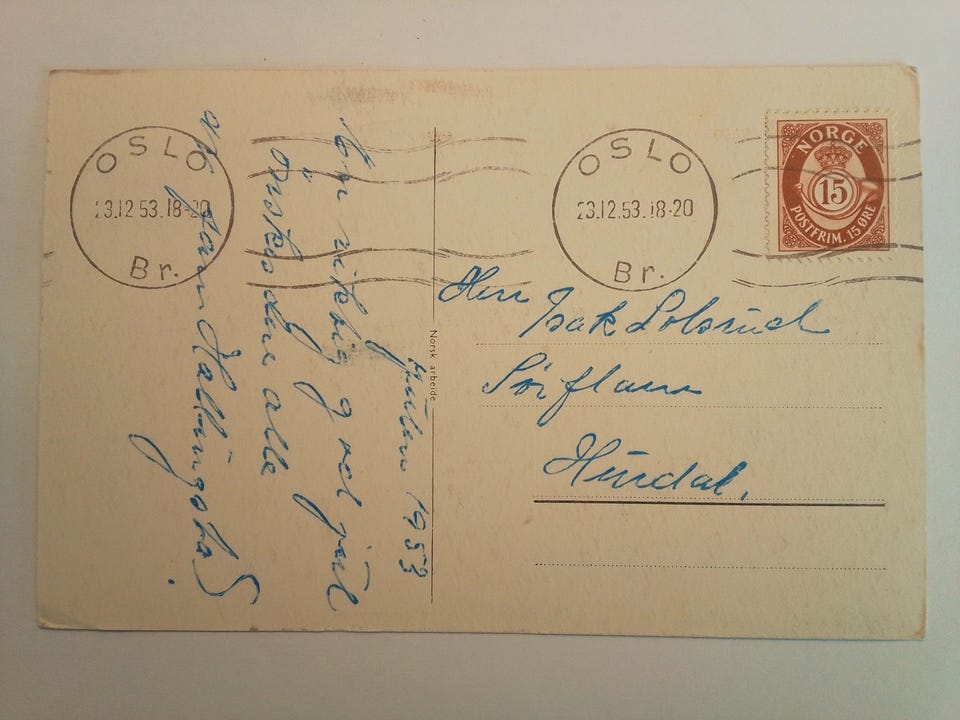 OSLO
23.12.53.18-20
Br.
OSLO
23.12.53.18-20
Br.
NORGE
15
POSTFRIM. 15 ØRE
Norsk arbeide
Julen 1953
En riktig god jul
ønskes dere alle
av
Herr
Isak
Hurdal.